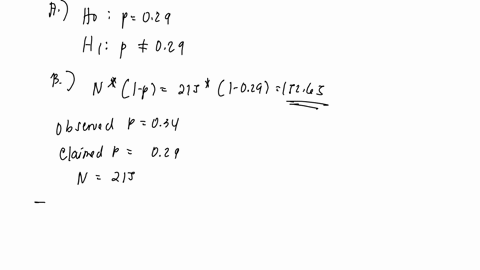 A.) H0 : p = 0.29
H1 : p ≠ 0.29
B.) N * (1-p) = 215 * (1-0.29) = 152.65
Observed p = 0.34
Claimed p = 0.29
N = 215